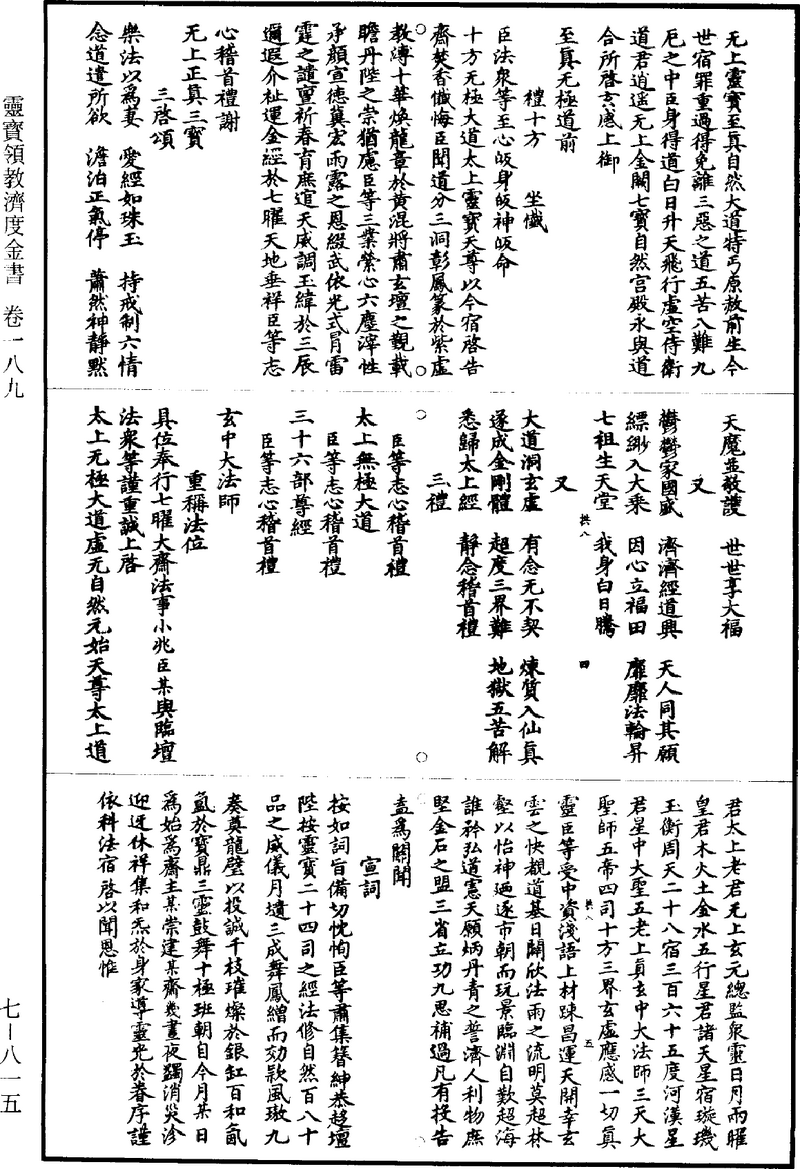 靈寶領教濟度金書　卷一八九
七－八一五
无上靈寶至真自然大道特丐原赦前生今
世宿罪重過得免離三惡之道五苦八難九
厄之中臣身得道白日升天飛行虛空侍衛
道君逍遙无上金闕七寶自然宮殿永與道
合所啓玄感上御
至真无極道前
禮十方　坐懺
臣法衆等至心皈身皈神皈命
十方无極大道太上靈寶天尊以今宿啓告
齋焚香懺悔臣聞道分三洞彰鳳篆於紫虛
教溥十華煥龍章於黃混將肅玄壇之觀載
瞻丹陛之崇猶慮臣等三業縈心六塵滓性
承顏宣德冀宏雨露之恩綴武依光式冐雷
霆之譴亶祈春育庶逭天威調玉緯於三辰
邇遐介祉運金經於七曜天地垂祥臣等志
心稽首禮謝
无上正真三寶
三啓頌
樂法以爲妻　愛經如珠玉　持戒制六情
念道遣所欲　澹泊正氣停　蕭然神靜默
天魔並敬護　世世享大福
又
鬱鬱家國盛　濟濟經道興　天人同其願
縹緲入大乘　因心立福田　靡靡法輪昇
七祖生天堂　我身白日騰
拱八　四
又
大道洞玄虛　有念无不契　煉質入仙真
遂成金剛體　超度三界難　地獄五苦解
悉歸太上經　靜念稽首禮
三禮
臣等志心稽首禮
太上無極大道
臣等志心稽首禮
三十六部尊經
臣等志心稽首禮
玄中大法師
重稱法位
具位奉行七曜大齋法事小兆臣某與臨壇
法衆等謹重誠上啓
太上无極大道虛无自然元始天尊太上道
君太上老君无上玄元總監衆靈日月兩曜
皇君木火土金水五行星君諸天星宿璇璣
玉衡周天二十八宿三百六十五度河漢星
君星中大聖五老上真玄中大法師三天大
聖師五帝四司十方三界玄虛應感一切真
拱八　五
靈臣等受中資淺語上材踈昌運天開幸玄
雲之快覩道基日闢欣法雨之流明莫超林
壑以怡神廼逐市朝而玩景臨淵自歎超海
誰矜弘道憲天願炳丹青之誓濟人利物庶
堅金石之盟三省立功九思補過凡有投告
盍爲關聞
宣詞
按如詞旨備切忱恂臣等肅集簪紳恭趍壇
陛按靈寶二十四司之經法修自然百八十
品之威儀月墳三成舞鳳繒而効欵風璈九
奏奠龍璧以投誠千枝璀燦於銀缸百和氤
氳於寶鼎三靈鼓舞十極班朝自今月某日
爲始爲齋主某崇建某齋幾晝夜蠲消災沴
迎迓休祥集和炁於身家導靈光於眷序謹
依科法宿啓以聞恩惟